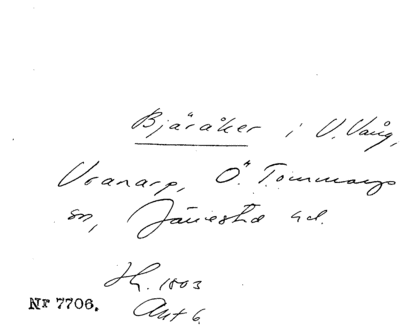 Bjäråker i V. Vång,
Vranarp, Ö. Tommarps
sn, Järrestad hd.
Sh. 1803
Akt 6.
Nr 7706.